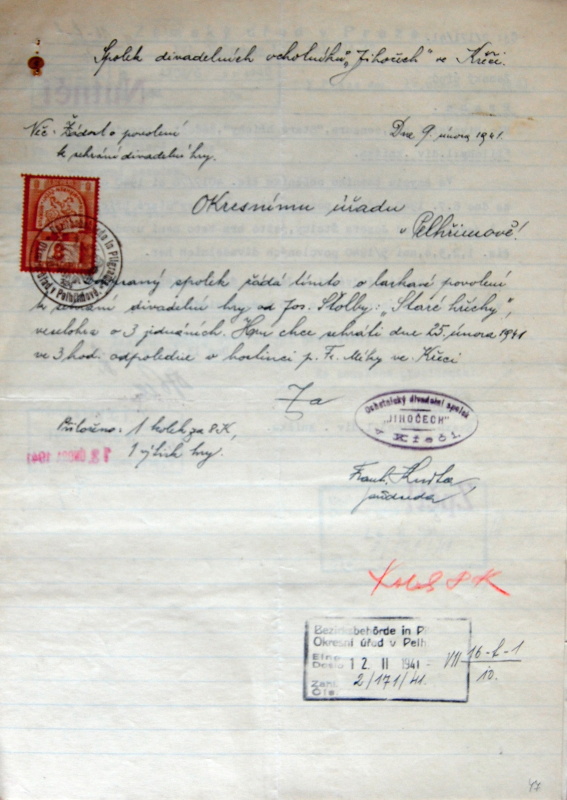 Spolek divadelních ochotníků „Jihočech“ ve Křeči.
Věc: Žádost o povolení
k sehrání divadelní hry.
Dne 9. února 1941
Okresnímu úřadu
v Pelhřimově!
spolek žádá tímto o laskavé povolení
k sehrání divadelní hry od Jos. Štolby: „Staré hříchy“,
veselohra o 3 jednáních. Hru chce sehráti dne 25. února 1941
ve 3 hod. odpoledne v hostinci p. Fr. ve Křeči
Za
Ochotnický divadelní spolek
"JIHOČECH"
v Křeči.
Přiloženo: 1 kolek za 8 K,
1 výtisk hry.
Frant.
předseda
Kolek 8 K
Bezirksbehörde in P
Okresní úřad v Pelh
Eing.
Došlo 12. II 1941
Zahl
Čís. 2/171/41.
VII 16-b-1
10.
47